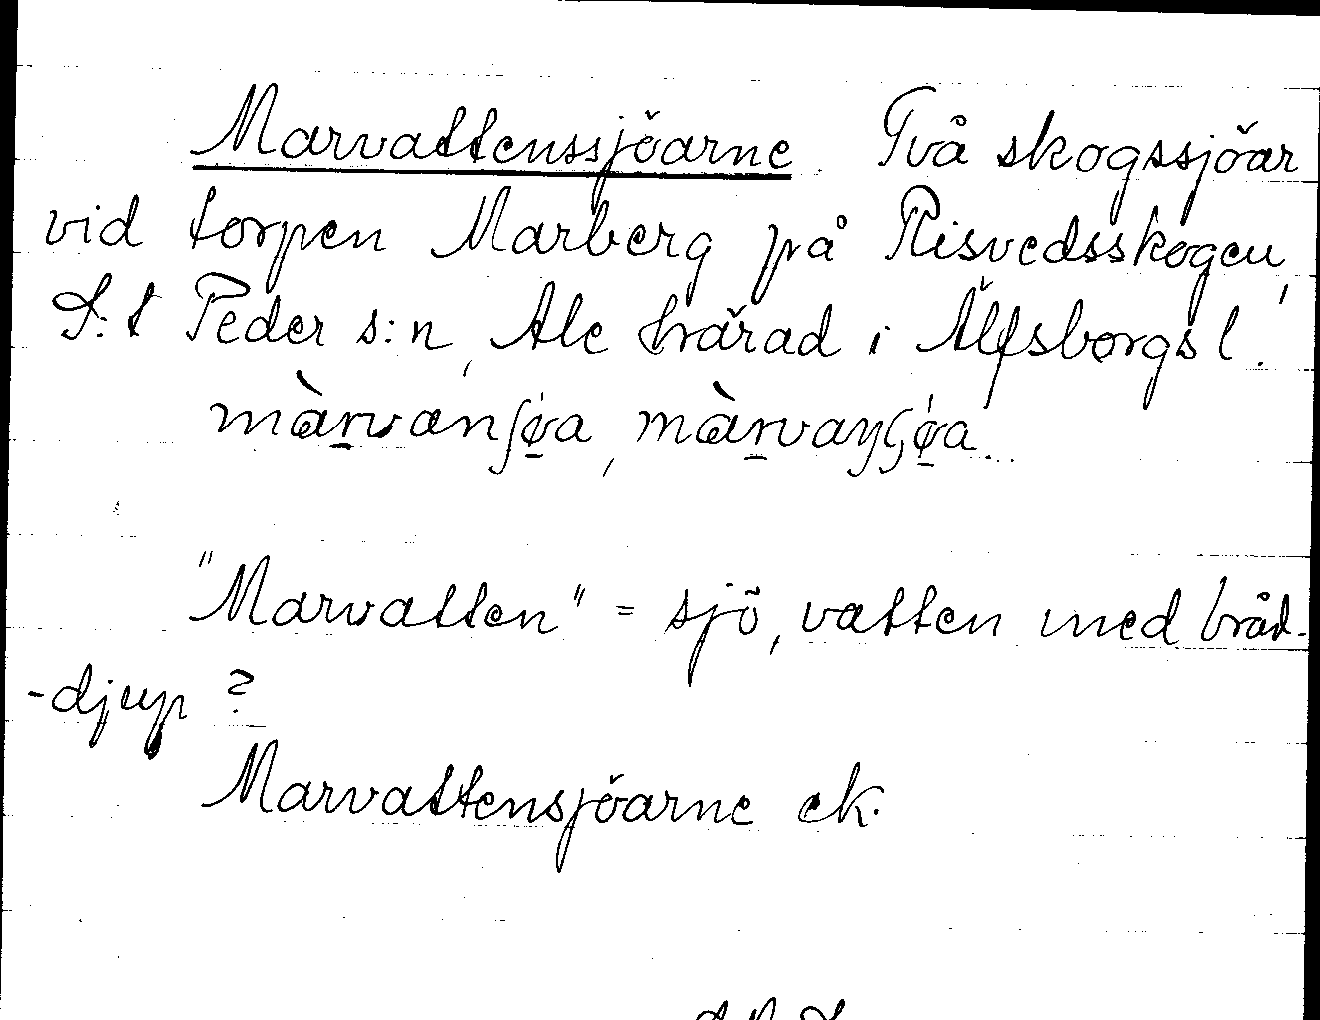 Marvattenssjöarne. Två skogssjöar
vid torpen Marberg på Risvedsskogen,
S:t Peder s:n, Ale härad i Älfsborgs l.
"Marvatten" = sjö, vatten med bråd-
-djup ?
Marvattensjöarne ek.